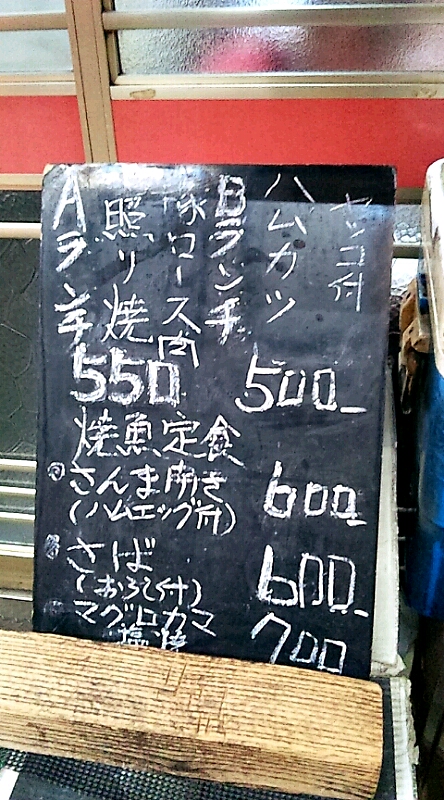 Aランチ
豚ロース肉
照り焼
550
Bランチ
ハムカツ
ヤッコ付
500
焼魚定食
さんま開き
(ハムエッグ付)
600
さば
(おろし付)
600
マグロカマ
塩焼
700